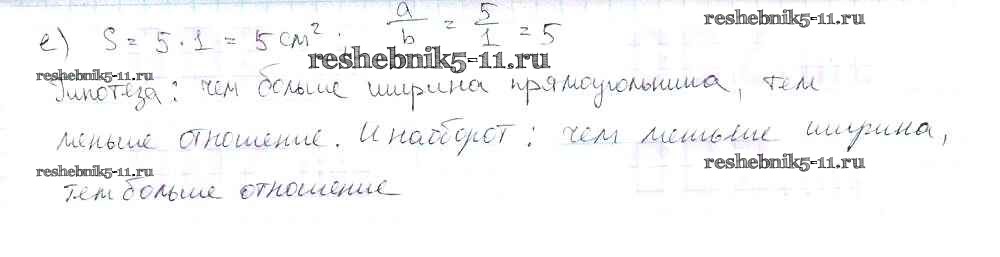 reshebnik5-11.ru
е) S = 5 · 1 = 5 см²; a/b = 5/1 = 5
reshebnik5-11.ru
reshebnik5-11.ru
Гипотеза: чем больше ширина прямоугольника, тем
меньше отношение. И наоборот: чем меньше ширина,
reshebnik5-11.ru
reshebnik5-11.ru
тем больше отношение